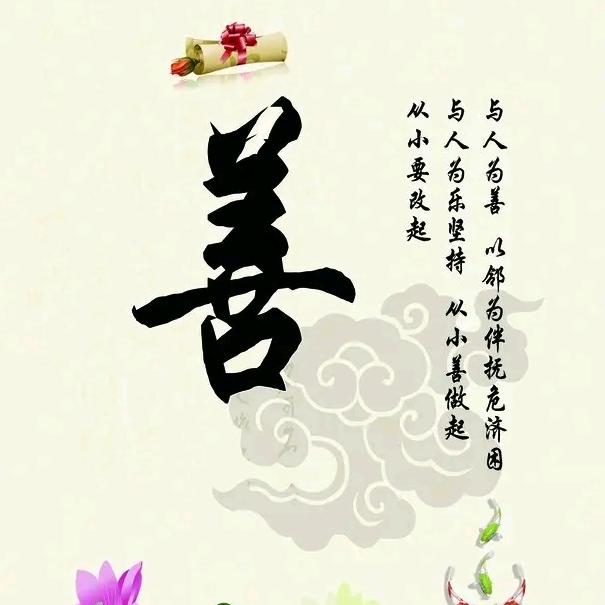 善
与人为善 以邻为伴抚危济困
与人为乐坚持 从小善做起
从小要改起